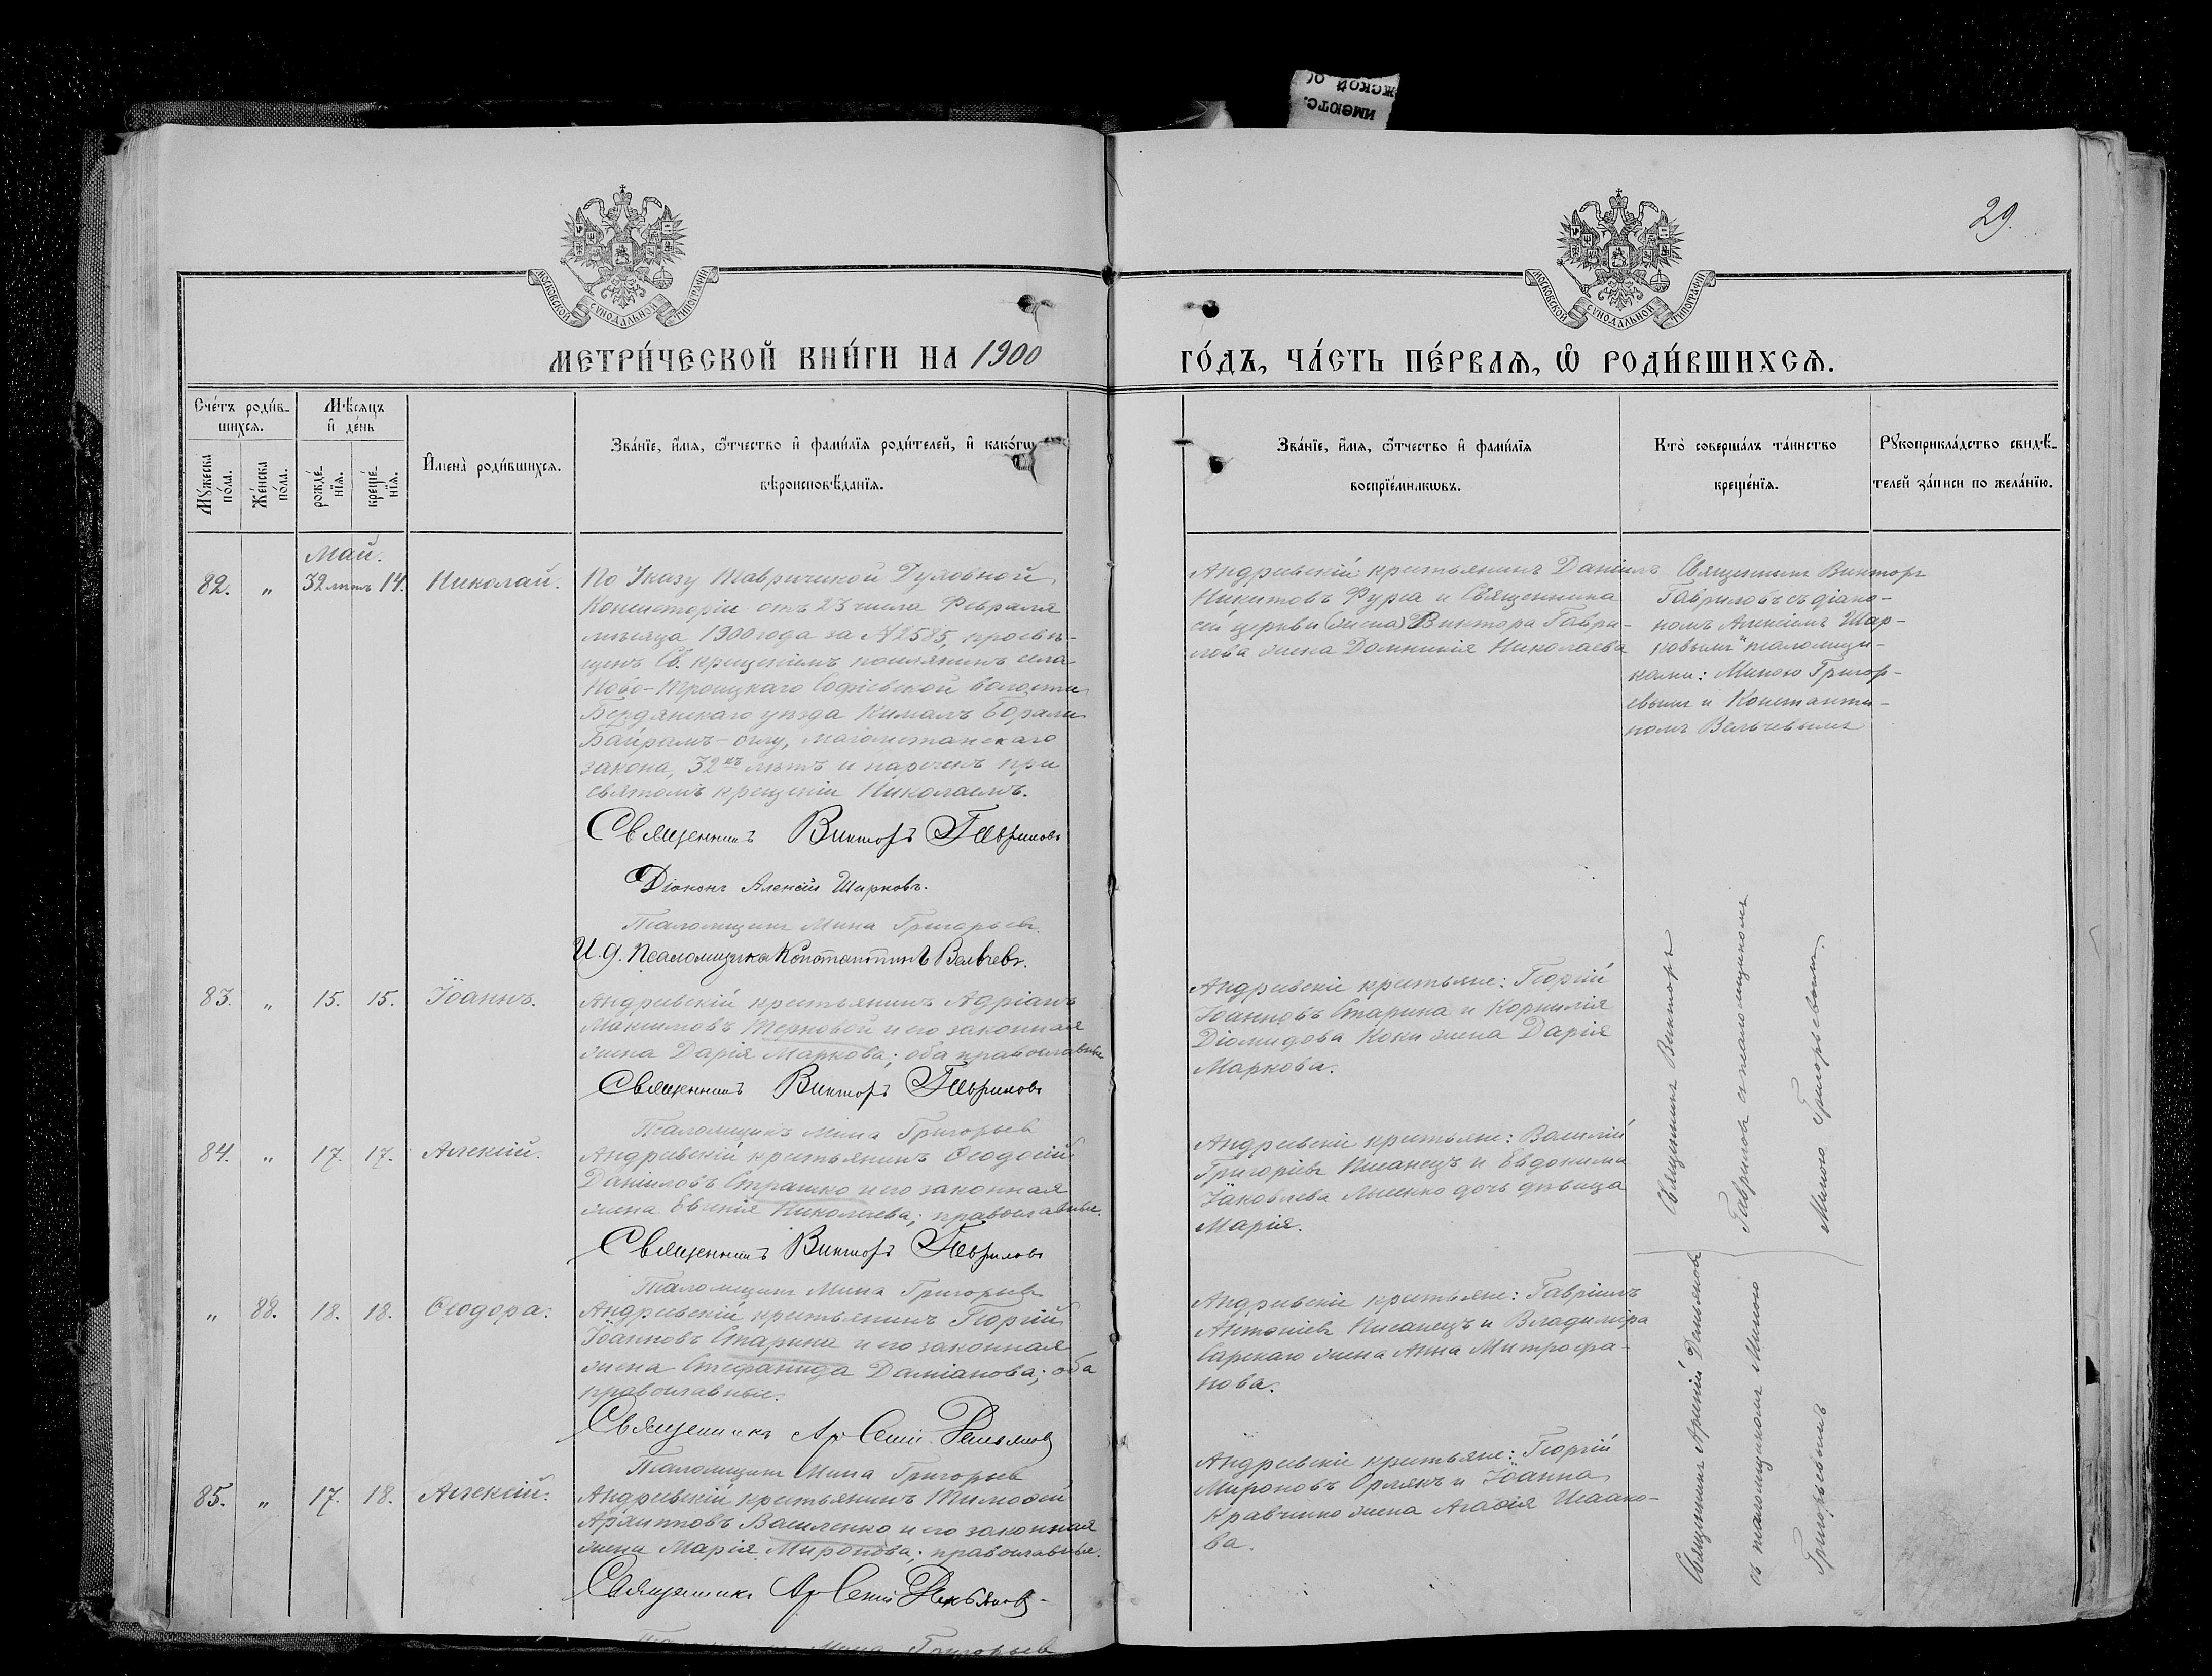 имеютс.
жской об
29.
МОСКОВСКОЙ СѴНОДАЛЬНОЙ ТИПОГРАФІИ
МОСКОВСКОЙ СѴНОДАЛЬНОЙ ТИПОГРАФІИ
МЕТРИ́ЧЕСКОЙ КНИ́ГИ НА 1900
ГО́ДЪ, ЧА́СТЬ ПЕ́РВАЯ, Ѡ РОДИ́ВШИХСЯ.
Сче́тъ роди́в-
шихся.
Мужеска по́ла.
Же́нска по́ла.
Мѣ́сяцъ
и де́нь
рожде́-
нїя.
креще́-
нїя.
Имена̀ роди́вшихся.
Зва́нїе, и́мя, ѻ́тчество и фами́лїя роди́телей, и како́гѡ
вѣроисповѣ́данїя.
Зва́нїе, и́мя, ѻ́тчество и фами́лїя
воспрїе́мникѡвъ.
Кто̀ соверша́лъ та́инство
креще́нїя.
Рукоприкла́дство свидѣ́-
телей за́писи по жела́нїю.
Май.
82. „ 32 лѣтъ 14. Николай.
По Указу Таврической Духовной
Консисторіи отъ 23 числа Февраля
мѣсяца 1900 года за № 2585, просвѣ-
щенъ Св. крещеніемъ поселянинъ села
Ново-Троицкаго Софіевской волости
Бердянскаго уѣзда
Байрамъ-оглу, магометанскаго
закона, 32хъ лѣтъ и нареченъ при
святомъ крещеніи Николаемъ.
Священникъ Викторъ Гавриловъ
Діаконъ Алексій Шарковъ.
Псаломщикъ Мина Григорьевъ.
И. д. Псаломщика Константинъ Вельчевъ.
Андреевскій крестьянинъ Даніилъ
Никитовъ Фурса и Священника
сей церкви (жена) Виктора Гаври-
лова жена Домникія Николаева
Священникъ Викторъ
Гавриловъ съ діако-
номъ Алексіемъ Шар-
ковымъ и псаломщи-
ками: Миною Григорь-
евымъ и Константи-
номъ Вельчевымъ
83. „ 15. 15. Іоаннъ.
Андреевскій крестьянинъ Адріанъ
Максимовъ Терновой и его законная
жена Дарія Маркова; оба православные
Священникъ Викторъ Гавриловъ
Псаломщикъ Мина Григорьев
Андреевскіе крестьяне: Георгій
Іоанновъ Старина и Корнилія
Діомидова Коки жена Дарія
Маркова.
84. „ 17. 17. Алексій.
Андреевскій крестьянинъ Ѳеодосій
Даніиловъ Страшко и его законная
жена Евгенія Николаева; православные.
Священникъ Викторъ Гавриловъ
Псаломщикъ Мина Григорьев
Андреевскіе крестьяне: Василій
Григоріевъ Писанецъ и Евдокима
Іаковлева Лысенко дочь дѣвица
Марія.
Священникъ Викторъ
Гавриловъ съ псаломщикомъ
Миною Григорьевымъ.
„ 88. 18. 18. Ѳеодора.
Андреевскій крестьянинъ Георгій
Іоанновъ Старина и его законная
жена Стефанида Даміанова; оба
православные.
Священникъ Арсеній Демьянов
Псаломщикъ Мина Григорьев
Андреевскіе крестьяне: Гавріилъ
Антоніевъ Писанецъ и Владиміра
Сарскаго жена Анна Митрофа-
нова.
85. „ 17. 18. Алексій.
Андреевскій крестьянинъ Тимоѳей
Архипповъ Василенко и его законная
жена Марія Миронова; православные.
Священникъ Арсеній Демьянов
Псаломщикъ Мина Григорьев
Андреевскіе крестьяне: Георгій
Мироновъ Орлякъ и Іоанна
Кравченко жена Агаѳія Исаако-
ва.
Священникъ Арсеній Демьяновъ
съ псаломщикомъ Миною
Григорьевымъ